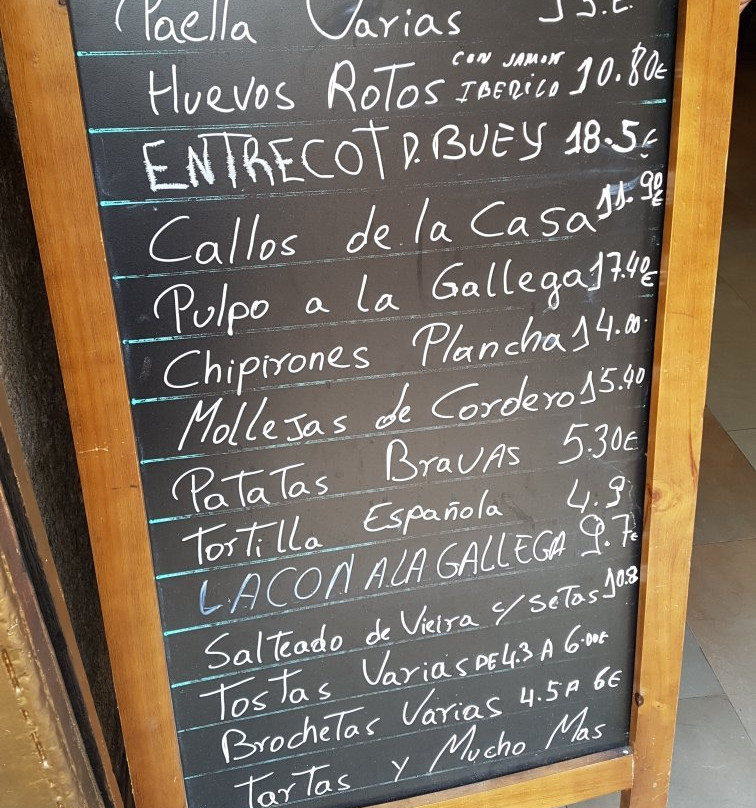 Paella Varias
Huevos Rotos CON JAMON IBERICO 10.80€
ENTRECOT D. BUEY 18.5€
Callos de la Casa 11.90€
Pulpo a la Gallega 17.40€
Chipirones Plancha 14.00
Mollejas de Cordero 15.40
Patatas Bravas 5.30€
Tortilla Española 4.9
LACON A LA GALLEGA 9.7€
Salteado de Vieira c/ setas 10.8
Tostas Varias DE 4.3 A 6.00€
Brochetas Varias 4.5 A 6€
Tartas y Mucho Mas